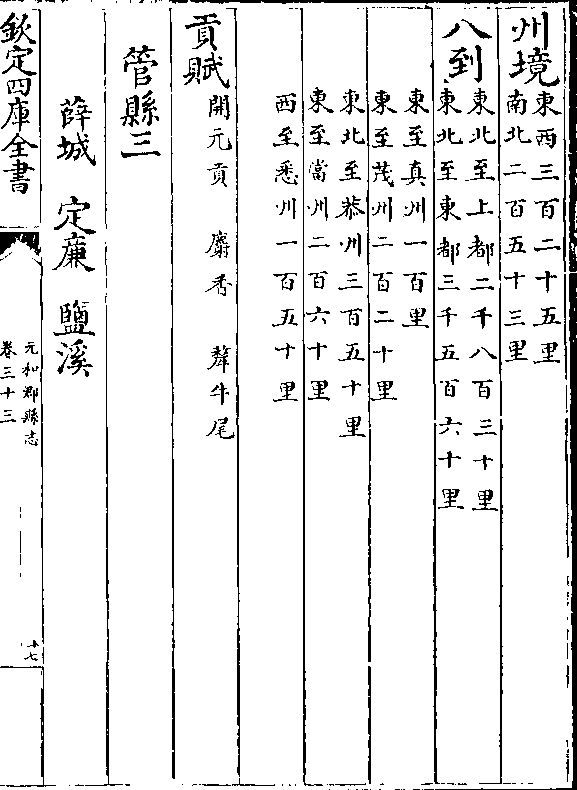 州境東西三百二十五里
南北二百五十三里
八到東北至上都二千八百三十里
東北至東都三千五百六十里
東至真州一百里
東至茂州二百二十里
東北至恭州三百五十里
東至當州二百六十里
西至悉州一百五十里
貢賦開元貢 麝香 犛牛尾
管縣三
薛城 定廉 鹽溪
欽定四庫全書
元和郡縣志
卷三十三
十七